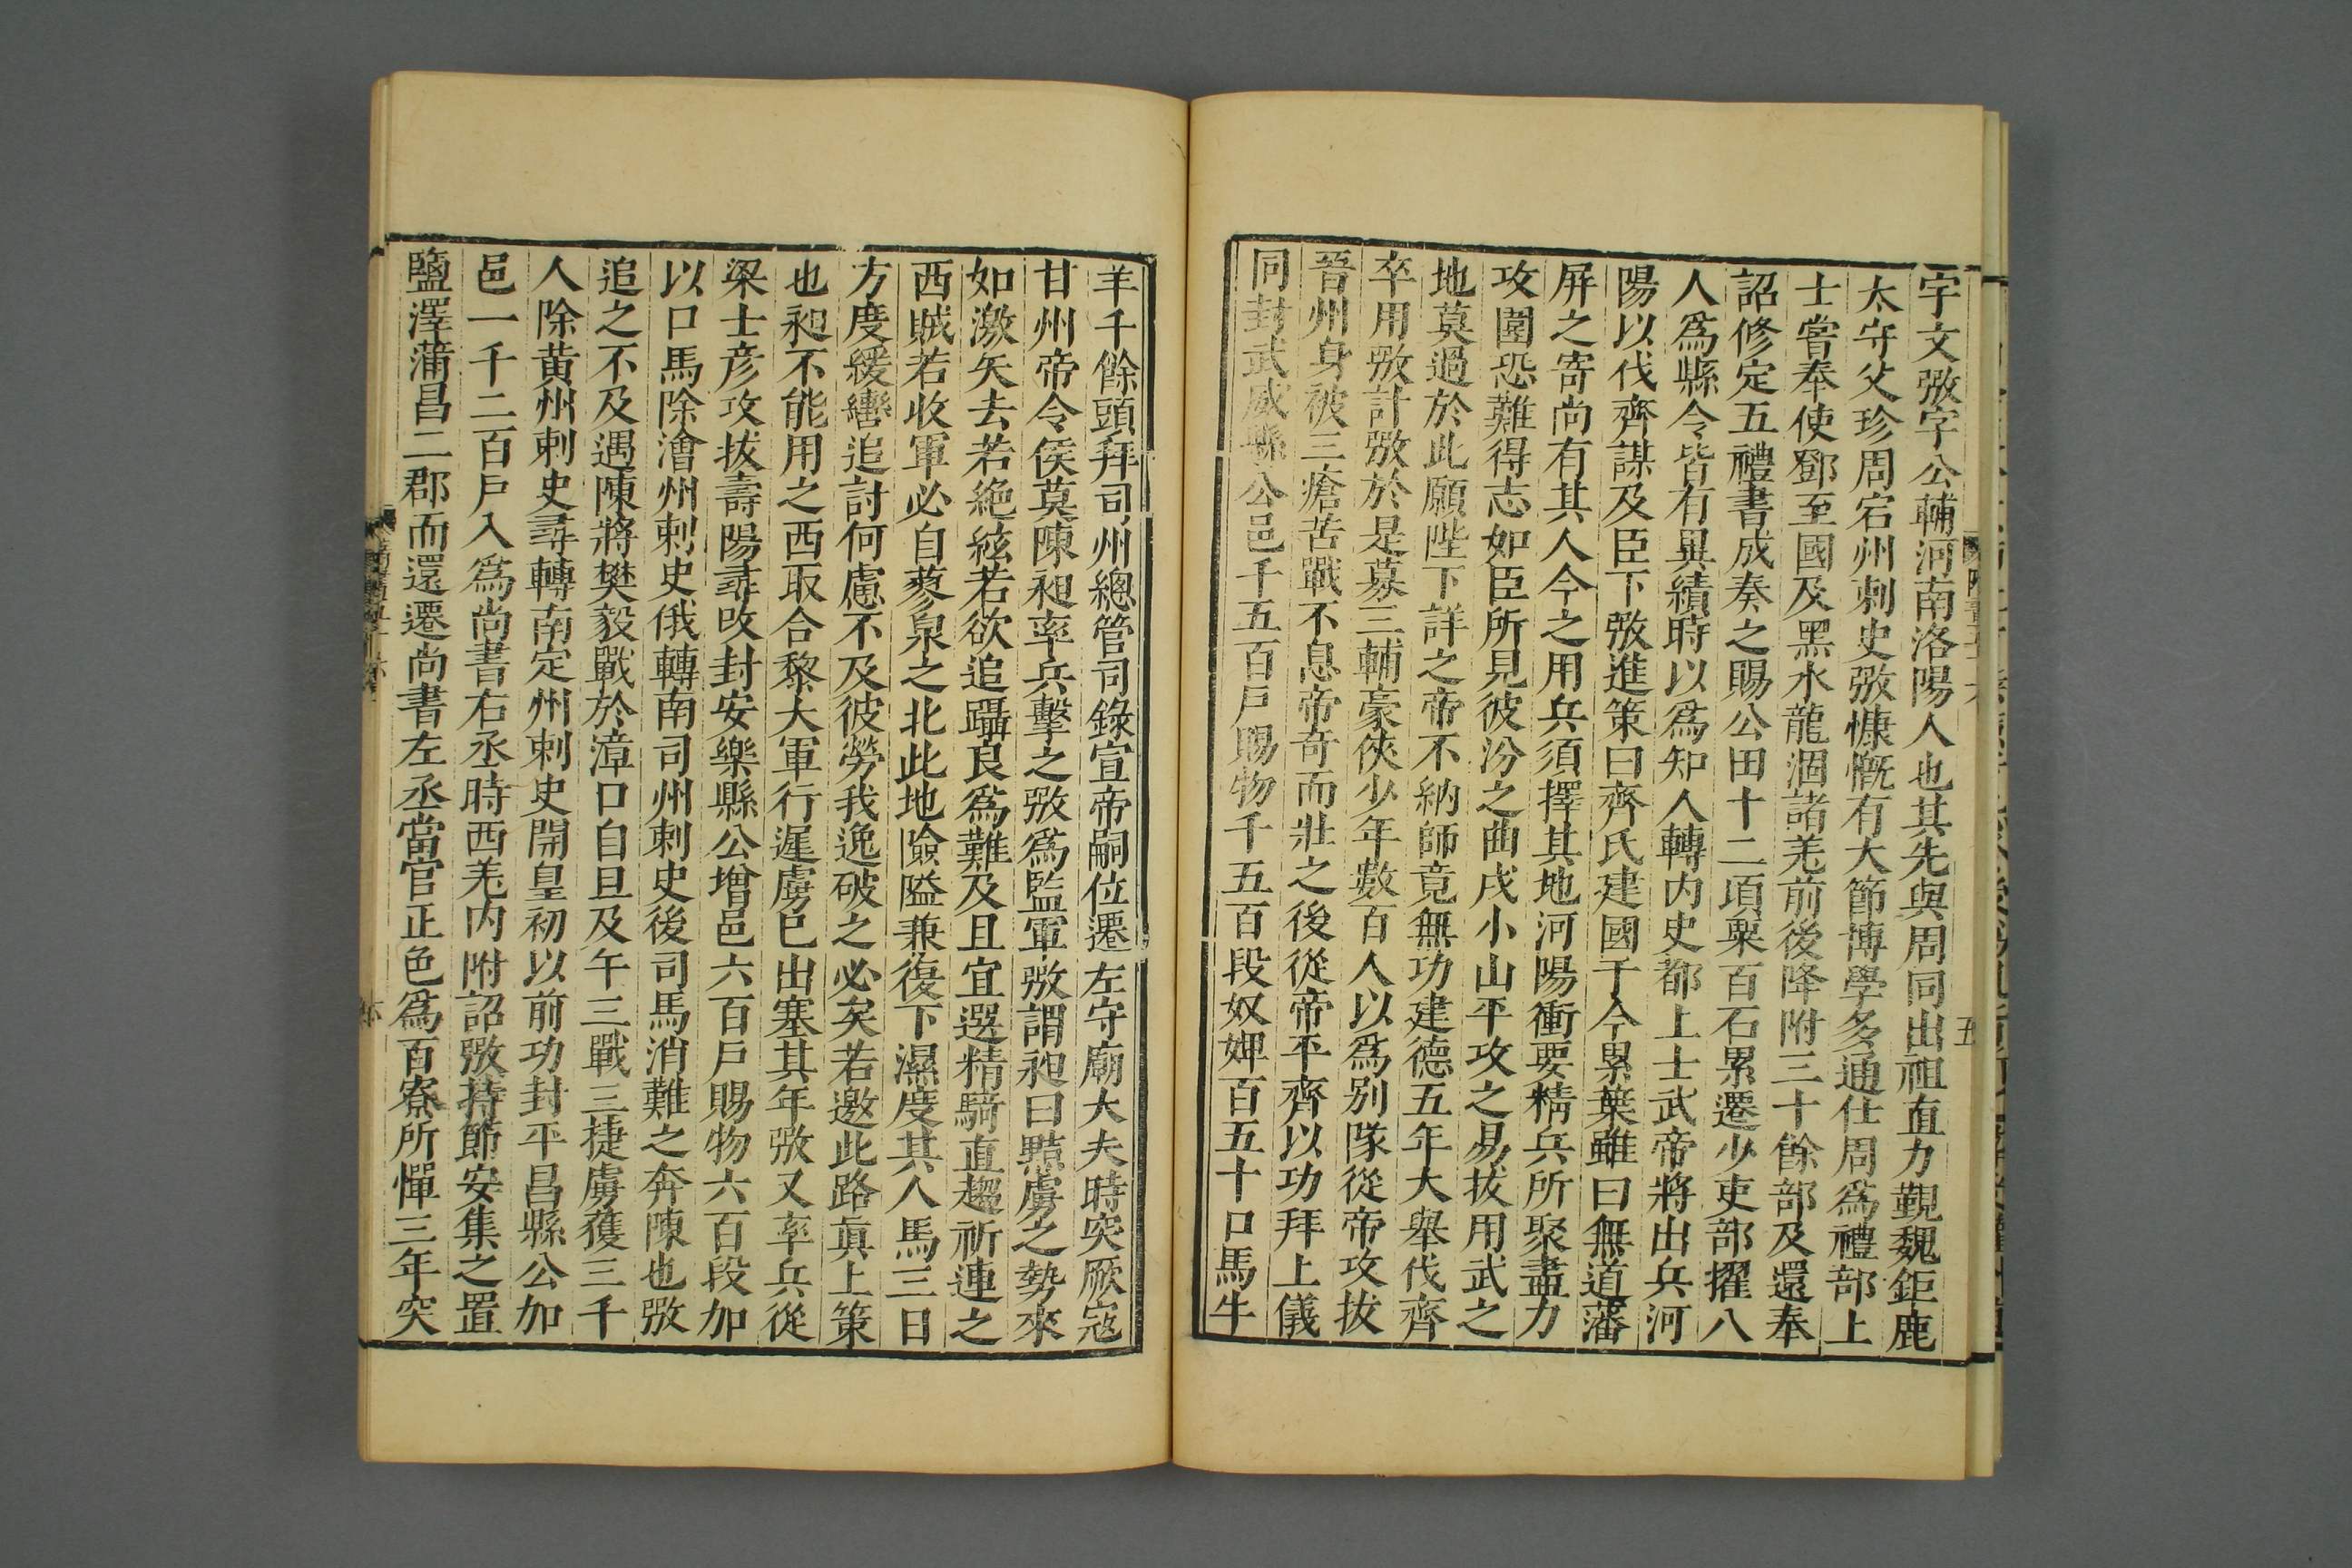 宇文㢸字公輔河南洛陽人也其先與周同出祖直力覲魏鉅鹿
太守父珍周宕州刺史㢸慷慨有大節博學多通仕周爲禮部上
士嘗奉使鄧至國及黑水龍涸諸羌前後降附三十餘部及還奉
詔修定五禮書成奏之賜公田十二頃粟百石累遷少吏部擢八
人爲縣令皆有異績時以爲知人轉内史都上士武帝將出兵河
陽以伐齊謀及臣下㢸進策曰齊氏建國于今累葉雖曰無道藩
屏之寄尚有其人今之用兵須擇其地河陽衝要精兵所聚盡力
攻圍恐難得志如臣所見彼汾之曲戍小山平攻之易拔用武之
地莫過於此願陛下詳之帝不納師竟無功建德五年大舉伐齊
卒用㢸計㢸於是募三輔豪俠少年數百人以爲别隊從帝攻拔
晉州身被三瘡苦戰不息帝奇而壯之後從帝平齊以功拜上儀
同封武威縣公邑千五百戶賜物千五百段奴婢百五十口馬牛
五
羊千餘頭拜司州總管司錄宣帝嗣位遷左守廟大夫時突厥寇
甘州帝令侯莫陳昶率兵擊之㢸爲監軍㢸謂昶曰黠虜之勢來
如激矢去若絶絃若欲追躡良爲難及且宜選精騎直趨祈連之
西賊若收軍必自蓼泉之北此地險隘兼復下濕度其人馬三日
方度緩轡追討何慮不及彼勞我逸破之必矣若邀此路眞上策
也昶不能用之西取合黎大軍行遲虜已出塞其年㢸又率兵從
梁士彦攻拔壽陽尋改封安樂縣公增邑六百戶賜物六百段加
以口馬除澮州刺史俄轉南司州刺史後司馬消難之奔陳也㢸
追之不及遇陳將樊毅戰於漳口自旦及午三戰三捷虜獲三千
人除黄州刺史尋轉南定州刺史開皇初以前功封平昌縣公加
邑一千二百戶入爲尚書右丞時西羌内附詔㢸持節安集之置
鹽澤蒲昌二郡而還遷尚書左丞當官正色爲百寮所憚三年突